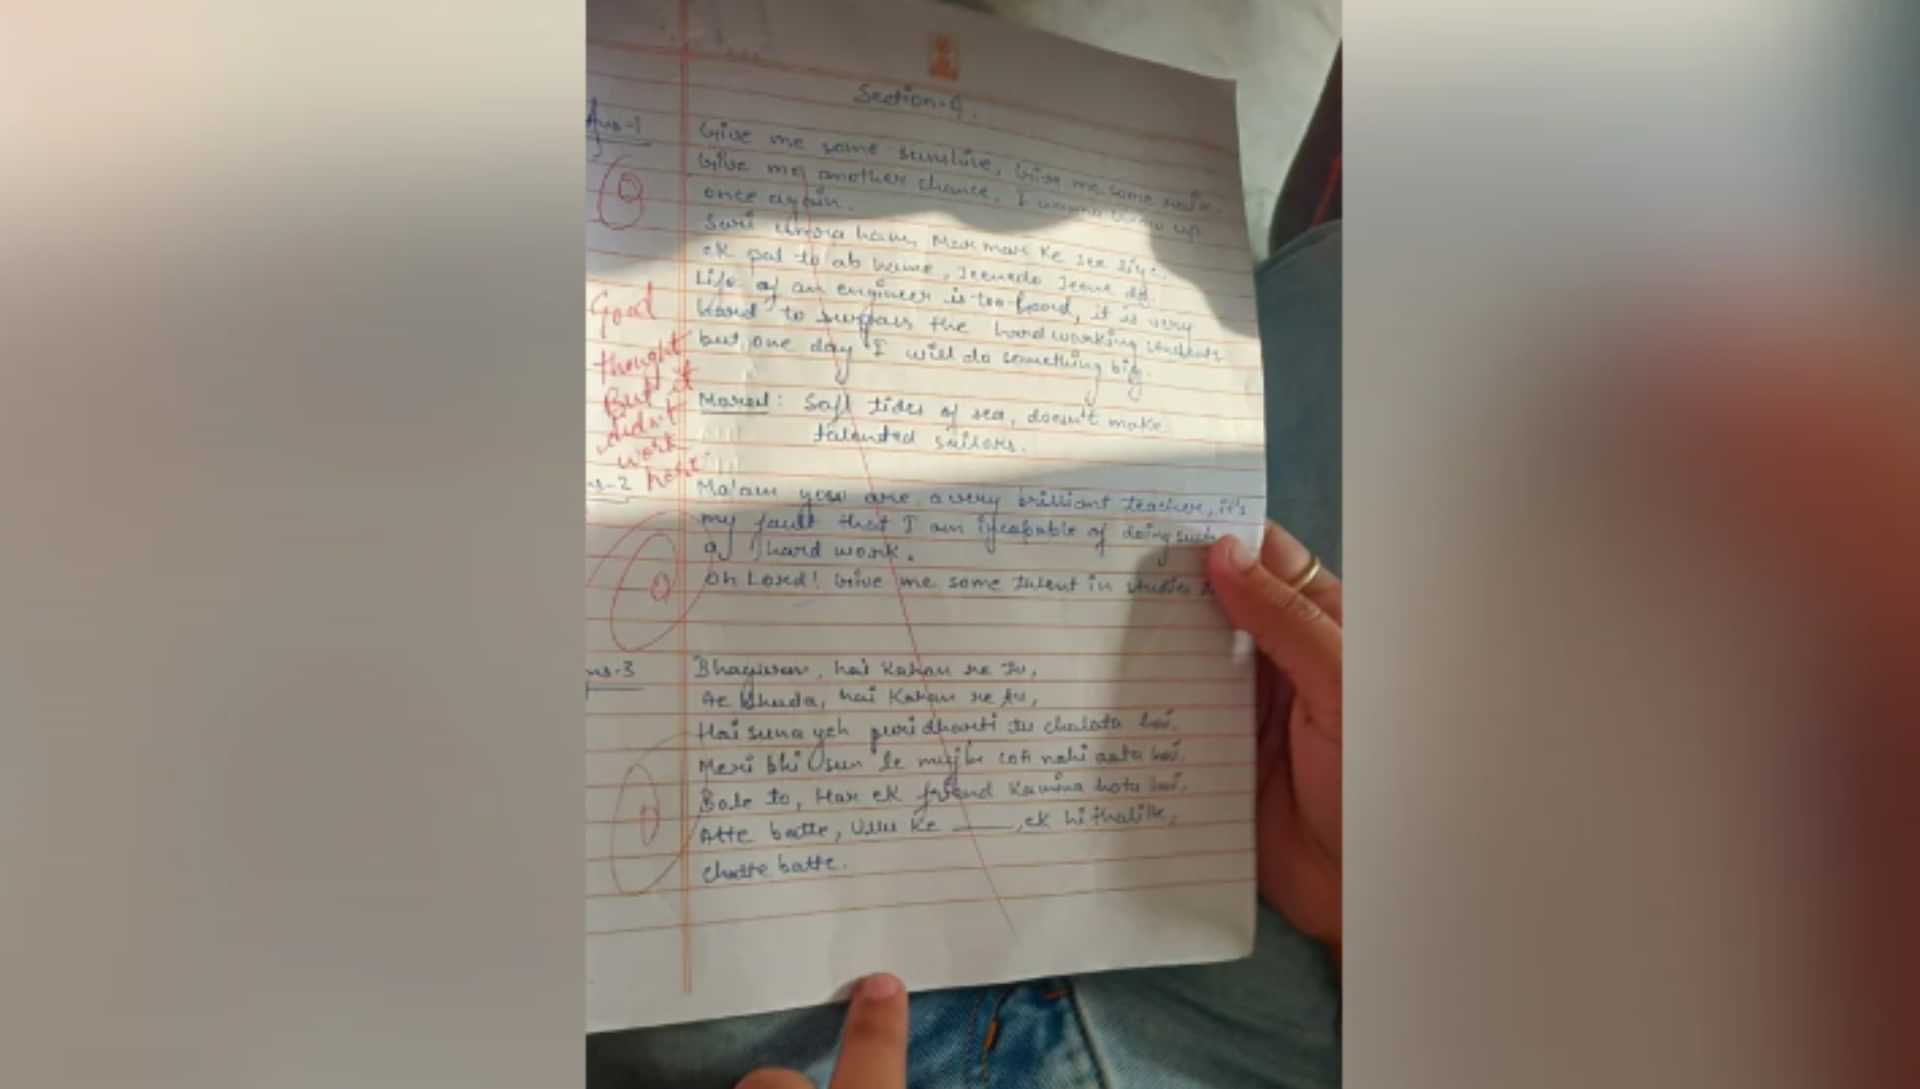 Section-C.
Ans-1
Give me some sunshine, Give me some rain.
Give me another chance, I wanna grow up
once again.
Sari umra ham, Mar mar ke jee liye.
ek pal to ab hame, jeenedo jeene do.
Life of an engineer is too hard, it is very
hard to surpass the hardworking students
but one day I will do something big.
Moral: Soft tides of sea, doesn't make
talented sailors.
0
Good
thought
But it
didn't
work
here
ns-2
Ma'am you are a very brilliant teacher, it's
my fault that I am incapable of doing such
a hard work.
Oh Lord! Give me some talent in studies
0
ns-3
Bhagwan, hai Kahan re tu,
Ae Khuda, hai Kahan re tu,
Hai suna yeh puri dharti tu chalata hai.
Meri bhi sun le mujhe nahi aata hai.
Bole to, Har ek friend Kamina hota hai.
Atte batte, Ullu ke ____, ek hi thali ke,
chatte batte.
0